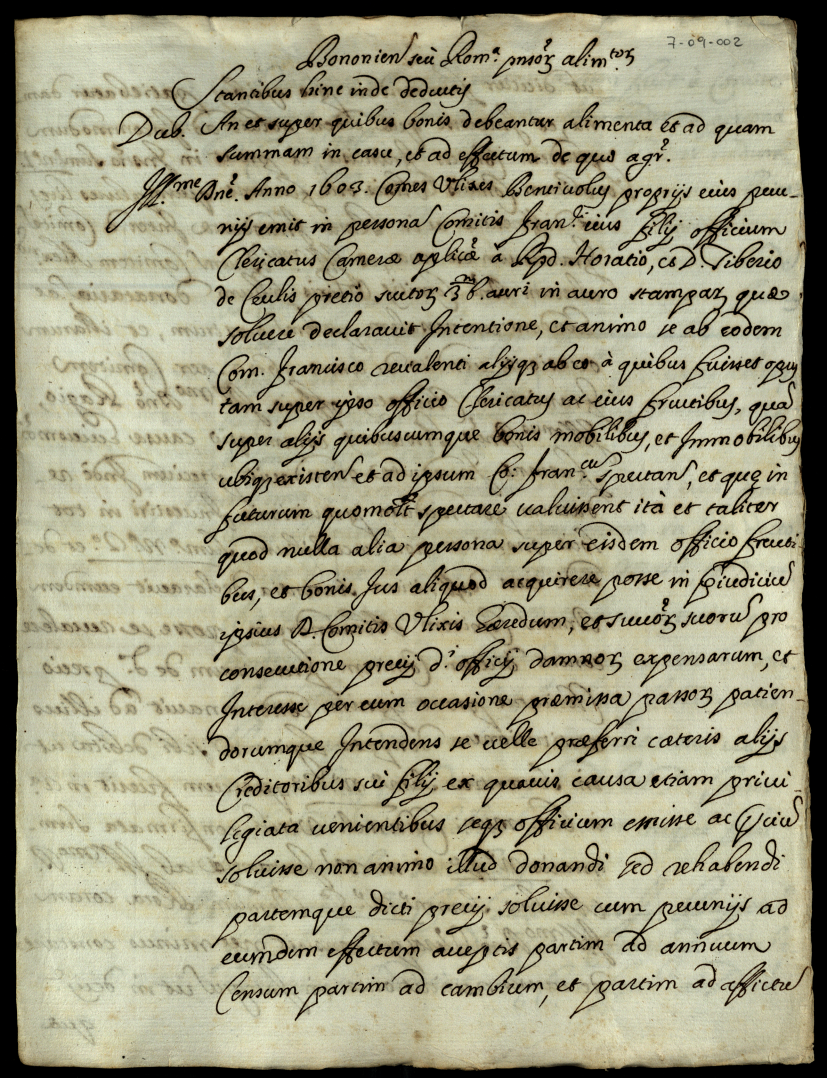 7-09-002
Bononien̄ seù Rom.ª
Stantibus hinc inde deductis
Dub. An et super quibus bonis debeantur alimenta et ad quam
summam in casu, et ad effectum de quo agr̃.
Ill.me Dñe. Anno 1603. Comes Ulixes Bentivolus proprijs eius pecu-
nijs emit in persona Comitis Fran.ci eius filij officium
Clericatus Cameræ aplicæ à Rpd. Horatio, et D. Tiberio
de Ceulis pretio auri in auro stampar quæ
soluere declarauit Intentione, et animo se ab eodem
Com. Francisco reualenti alijsq; ab eo à quibus fuisset
tam super ipso officio Clericatus ac eius fructibus, qua
super alijs quibuscumque bonis mobilibus, et Immobilibus
ubiq; existen et ad ipsum Co: Fran.cu spectan, et quę in
futurum quomolt spectare ualuissent ità et taliter
quod nulla alia persona super eisdem officio fructi-
bus, et bonis Jus aliquod acquirere posse in p̃iudiciũ
ipsius D. Comitis Ulixis Hæredum, et suorũ pro
consecutione precij d.i officij damnor expensarum, et
Interesse per eum occasione præmissa passor patien-
dorumque Intendens se uelle præferri cæteris alijs
Creditoribus sui filij ex quauis causa etiam priui-
legiata uenientibus seq; officium emisse ac p̃ciũ
soluisse non animo illud donandi sed rehabendi
partemque dicti precij soluisse cum pecunijs ad
eumdem effectum acceptis partim ad annuum
Censum partim ad cambium, et partim ad afficti